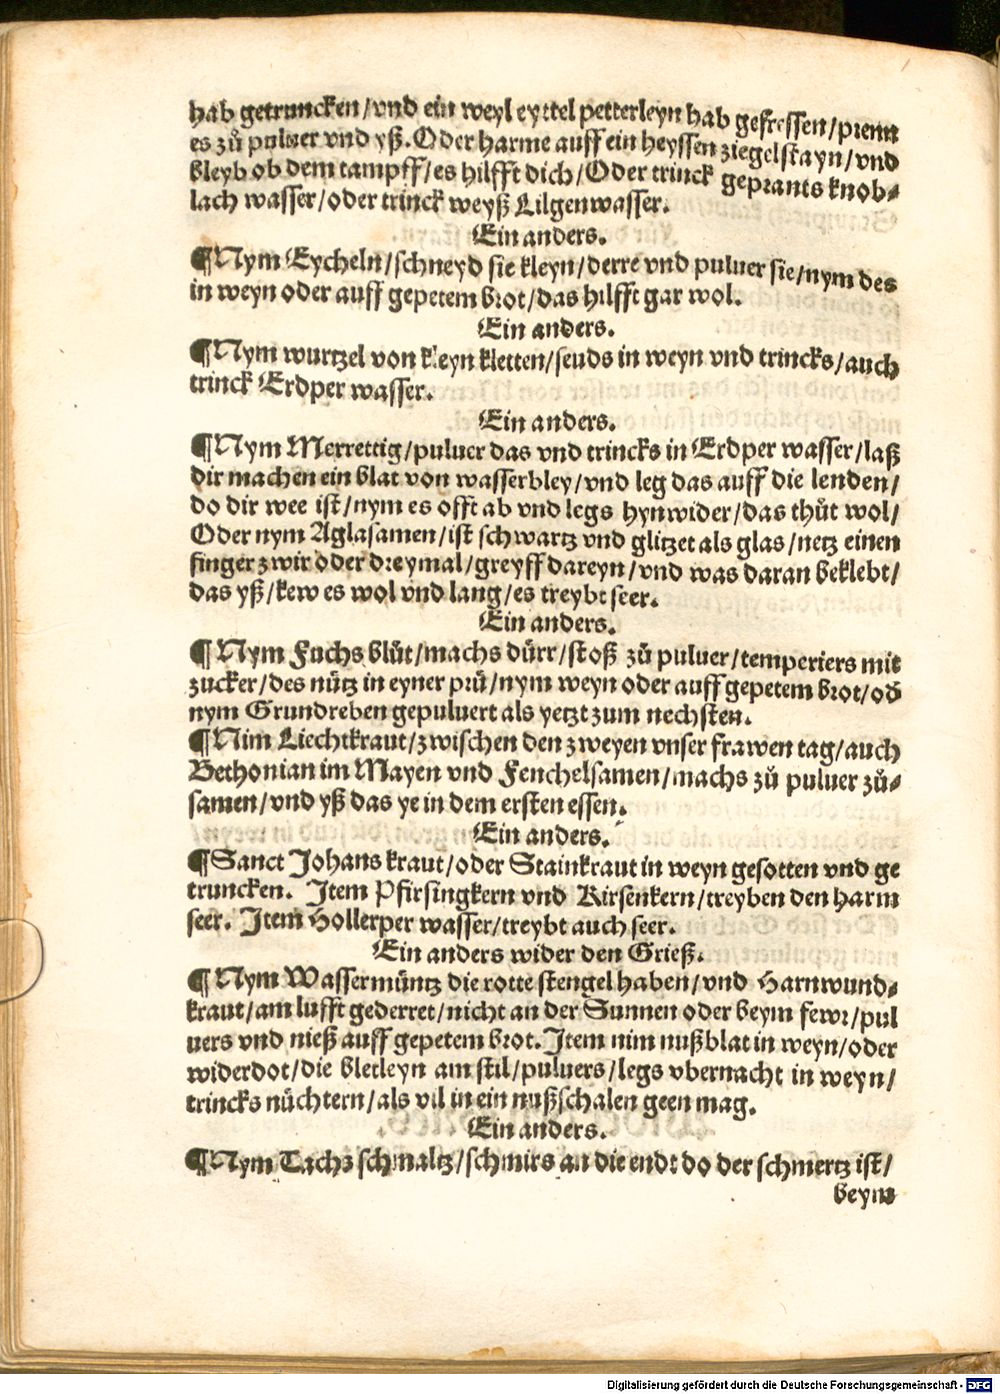 hab getruncken/vnd ein weyl eyttel petterleyn hab gefressen/prenn
es zů puluer vnd yß. Oder harme auff ein heyssen ziegelstayn/vnd
bleyb ob dem tampff/es hilfft dich/Oder trinck geprants knob⸗
lach wasser/oder trinck weyß Lilgenwasser.
Ein anders.
¶Nym Eycheln/schneyd sie kleyn/derre vnd puluer sie/nym des
in weyn oder auff gepetem brot/das hilfft gar wol.
Ein anders.
¶Nym wurtzel von kleyn kletten/seuds in weyn vnd trincks/auch
trinck Erdper wasser.
Ein anders.
¶Nym Merrettig/puluer das vnd trincks in Erdper wasser/laß
dir machen ein blat von wasserbley/vnd leg das auff die lenden/
do dir wee ist/nym es offt ab vnd legs hynwider/das thůt wol/
Oder nym Aglasamen/ist schwartz vnd glitzet als glas/netz einen
finger zwir oder dreymal/greyff dareyn/vnd was daran beklebt/
das yß/kew es wol vnd lang/es treybt seer.
Ein anders.
¶Nym Fuchs blůt/machs dürr/stoß zů puluer/temperiers mit
zucker/des nütz in eyner prü/nym weyn oder auff gepetem brot/od̕
nym Grundreben gepuluert als yetzt zum nechsten.
¶Nim Liechtkraut/zwischen den zweyen vnser frawen tag/auch
Bethonian im Mayen vnd Fenchelsamen/machs zů puluer zů⸗
samen/vnd yß das ye in dem ersten essen.
Ein anders.
¶Sanct Johans kraut/oder Stainkraut in weyn gesotten vnd ge
truncken. Item Pfirsingkern vnd Kirsenkern/treyben den harm
seer. Item Hollerper wasser/treybt auch seer.
Ein anders wider den Grieß.
¶Nym Wassermüntz die rotte stengel haben/vnd Harnwund⸗
kraut/am lufft gederret/nicht an der Sunnen oder beym fewr/pul
uers vnd nieß auff gepetem brot. Item nim nußblat in weyn/oder
widerdot/die bletleyn am stil/puluers/legs vbernacht in weyn/
trincks nüchtern/als vil in ein nußschalen geen mag.
Ein anders.
¶Nym Tachs schmaltz/schmirs an die endt do der schmertz ist/
beym
Digitalisierung gefördert durch die Deutsche Forschungsgemeinschaft - DFG